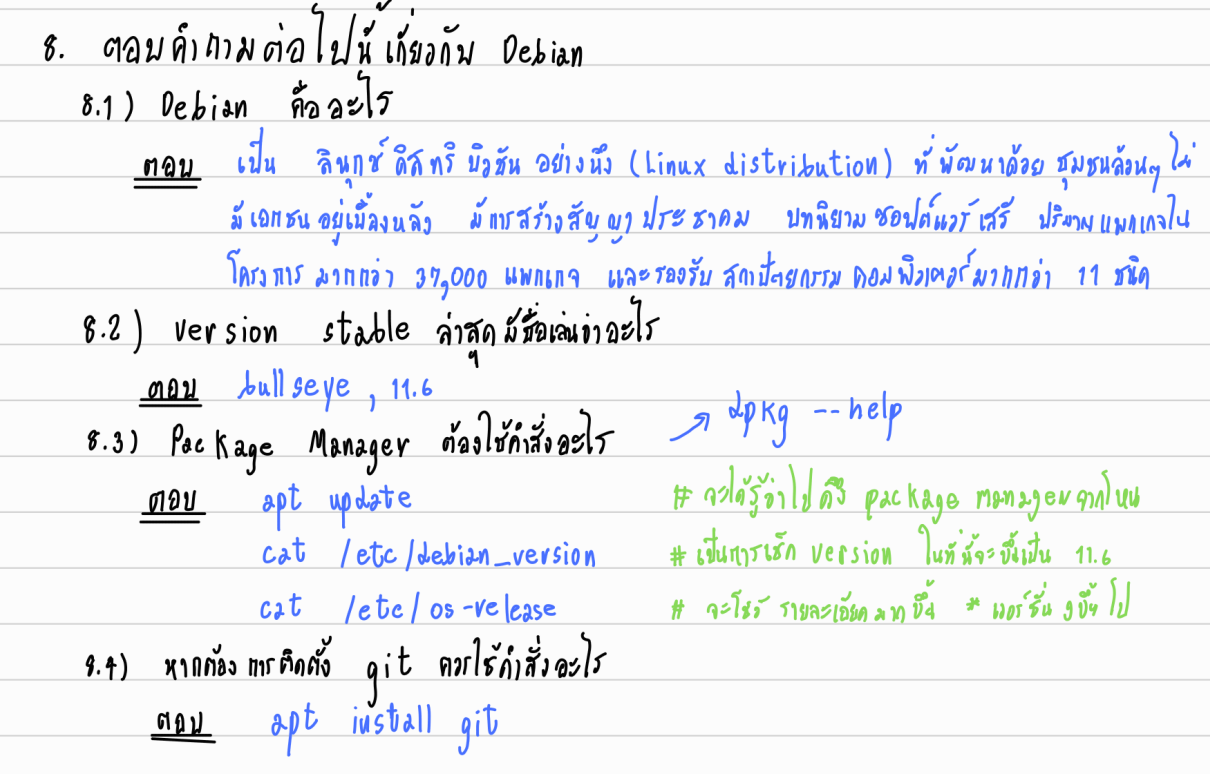 8. ตอบคำถามต่อไปนี้เกี่ยวกับ Debian
8.1) Debian คืออะไร
ตอบ เป็น ลินุกซ์ดิสทริบิวชันอย่างนึง (Linux distribution) ที่พัฒนาด้วยชุมชนล้วนๆ ไม่
มีเอกชนอยู่เบื้องหลัง มีการสร้างสัญญาประชาคม บทนิยามซอฟต์แวร์เสรี ปริมาณแพกเกจใน
โครงการมากกว่า 37,000 แพกเกจ และรองรับสถาปัตยกรรมคอมพิวเตอร์มากกว่า 11 ชนิด
8.2) version stable ล่าสุดมีชื่อเล่นว่าอะไร
ตอบ bullseye , 11.6
8.3) Package Manager ต้องใช้คำสั่งอะไร
↗ dpkg --help
ตอบ apt update # จะได้รู้ว่าไปดึง package manager จากไหน
cat /etc/debian_version # เป็นการเช็ก version ในที่นี้จะขึ้นเป็น 11.6
cat /etc/os-release # จะโชว์ รายละเอียดมากขึ้น * เวอร์ชั่น 9 ขึ้นไป
8.4) หากต้องการติดตั้ง git ควรใช้คำสั่งอะไร
ตอบ apt install git